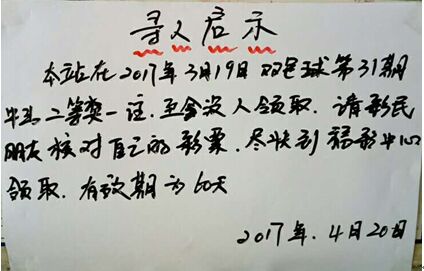 寻人启示
本站在2017年3月19日双色球第31期
中出二等奖一注.至今没人领取.请彩民
朋友核对自己的彩票.尽快到福彩中心
领取.有效期为60天
2017年.4月20日